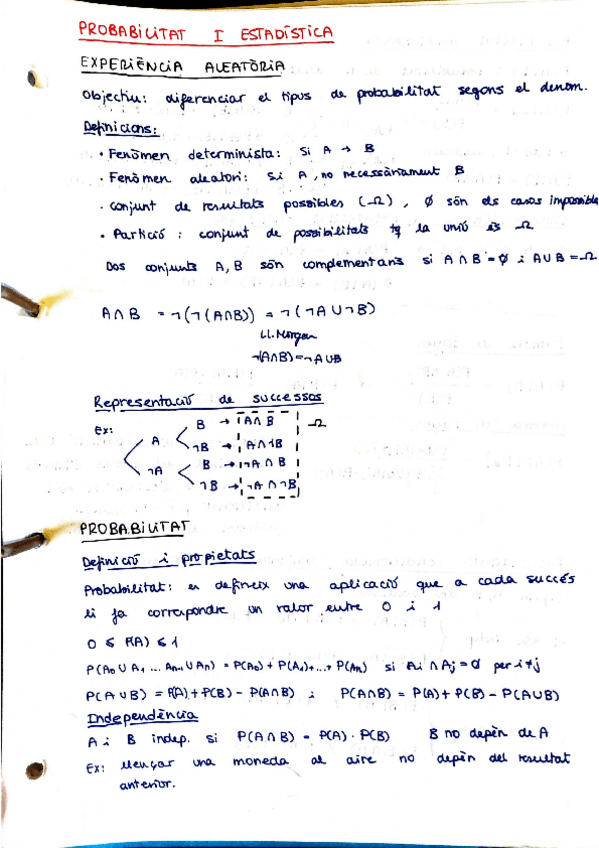 PROBABILITAT I ESTADÍSTICA
EXPERIÈNCIA ALEATÒRIA
Objectiu: diferenciar el tipus de probabilitat segons el denom.
Definicions:
· Fenòmen determinista: Si A → B
· Fenòmen aleatori: Si A, no necessàriament B
· conjunt de resultats possibles (Ω), Ø són els casos impossible
· Partició: conjunt de possibilitats tq la unió és Ω
Dos conjunts A, B són complementaris si A ∩ B = Ø i A ∪ B = Ω
A ∩ B = ¬(¬(A∩B)) = ¬(¬A ∪ ¬B)
Ll. Morgan
¬(A∩B) = ¬A ∪ B
Representació de successos
Ex:
A
B → A ∩ B Ω
¬B → A ∩ ¬B
¬A
B → ¬A ∩ B
¬B → ¬A ∩ ¬B
PROBABILITAT
Definició i propietats
Probabilitat: es defineix una aplicació que a cada succés
li fa correspondre un valor entre 0 i 1
0 ≤ P(A) ≤ 1
P(A₀ ∪ A₁ ... Aₙ₋₁ ∪ Aₙ) = P(A₀) + P(A₁) + ... + P(Aₙ) si Aᵢ ∩ Aⱼ = Ø per i ≠ j
P(A ∪ B) = P(A) + P(B) - P(A ∩ B) i P(A∩B) = P(A) + P(B) - P(A∪B)
Independència
A i B indep. si P(A ∩ B) = P(A) · P(B) B no depèn de A
Ex: llençar una moneda al aire no depèn del resultat
anterior.